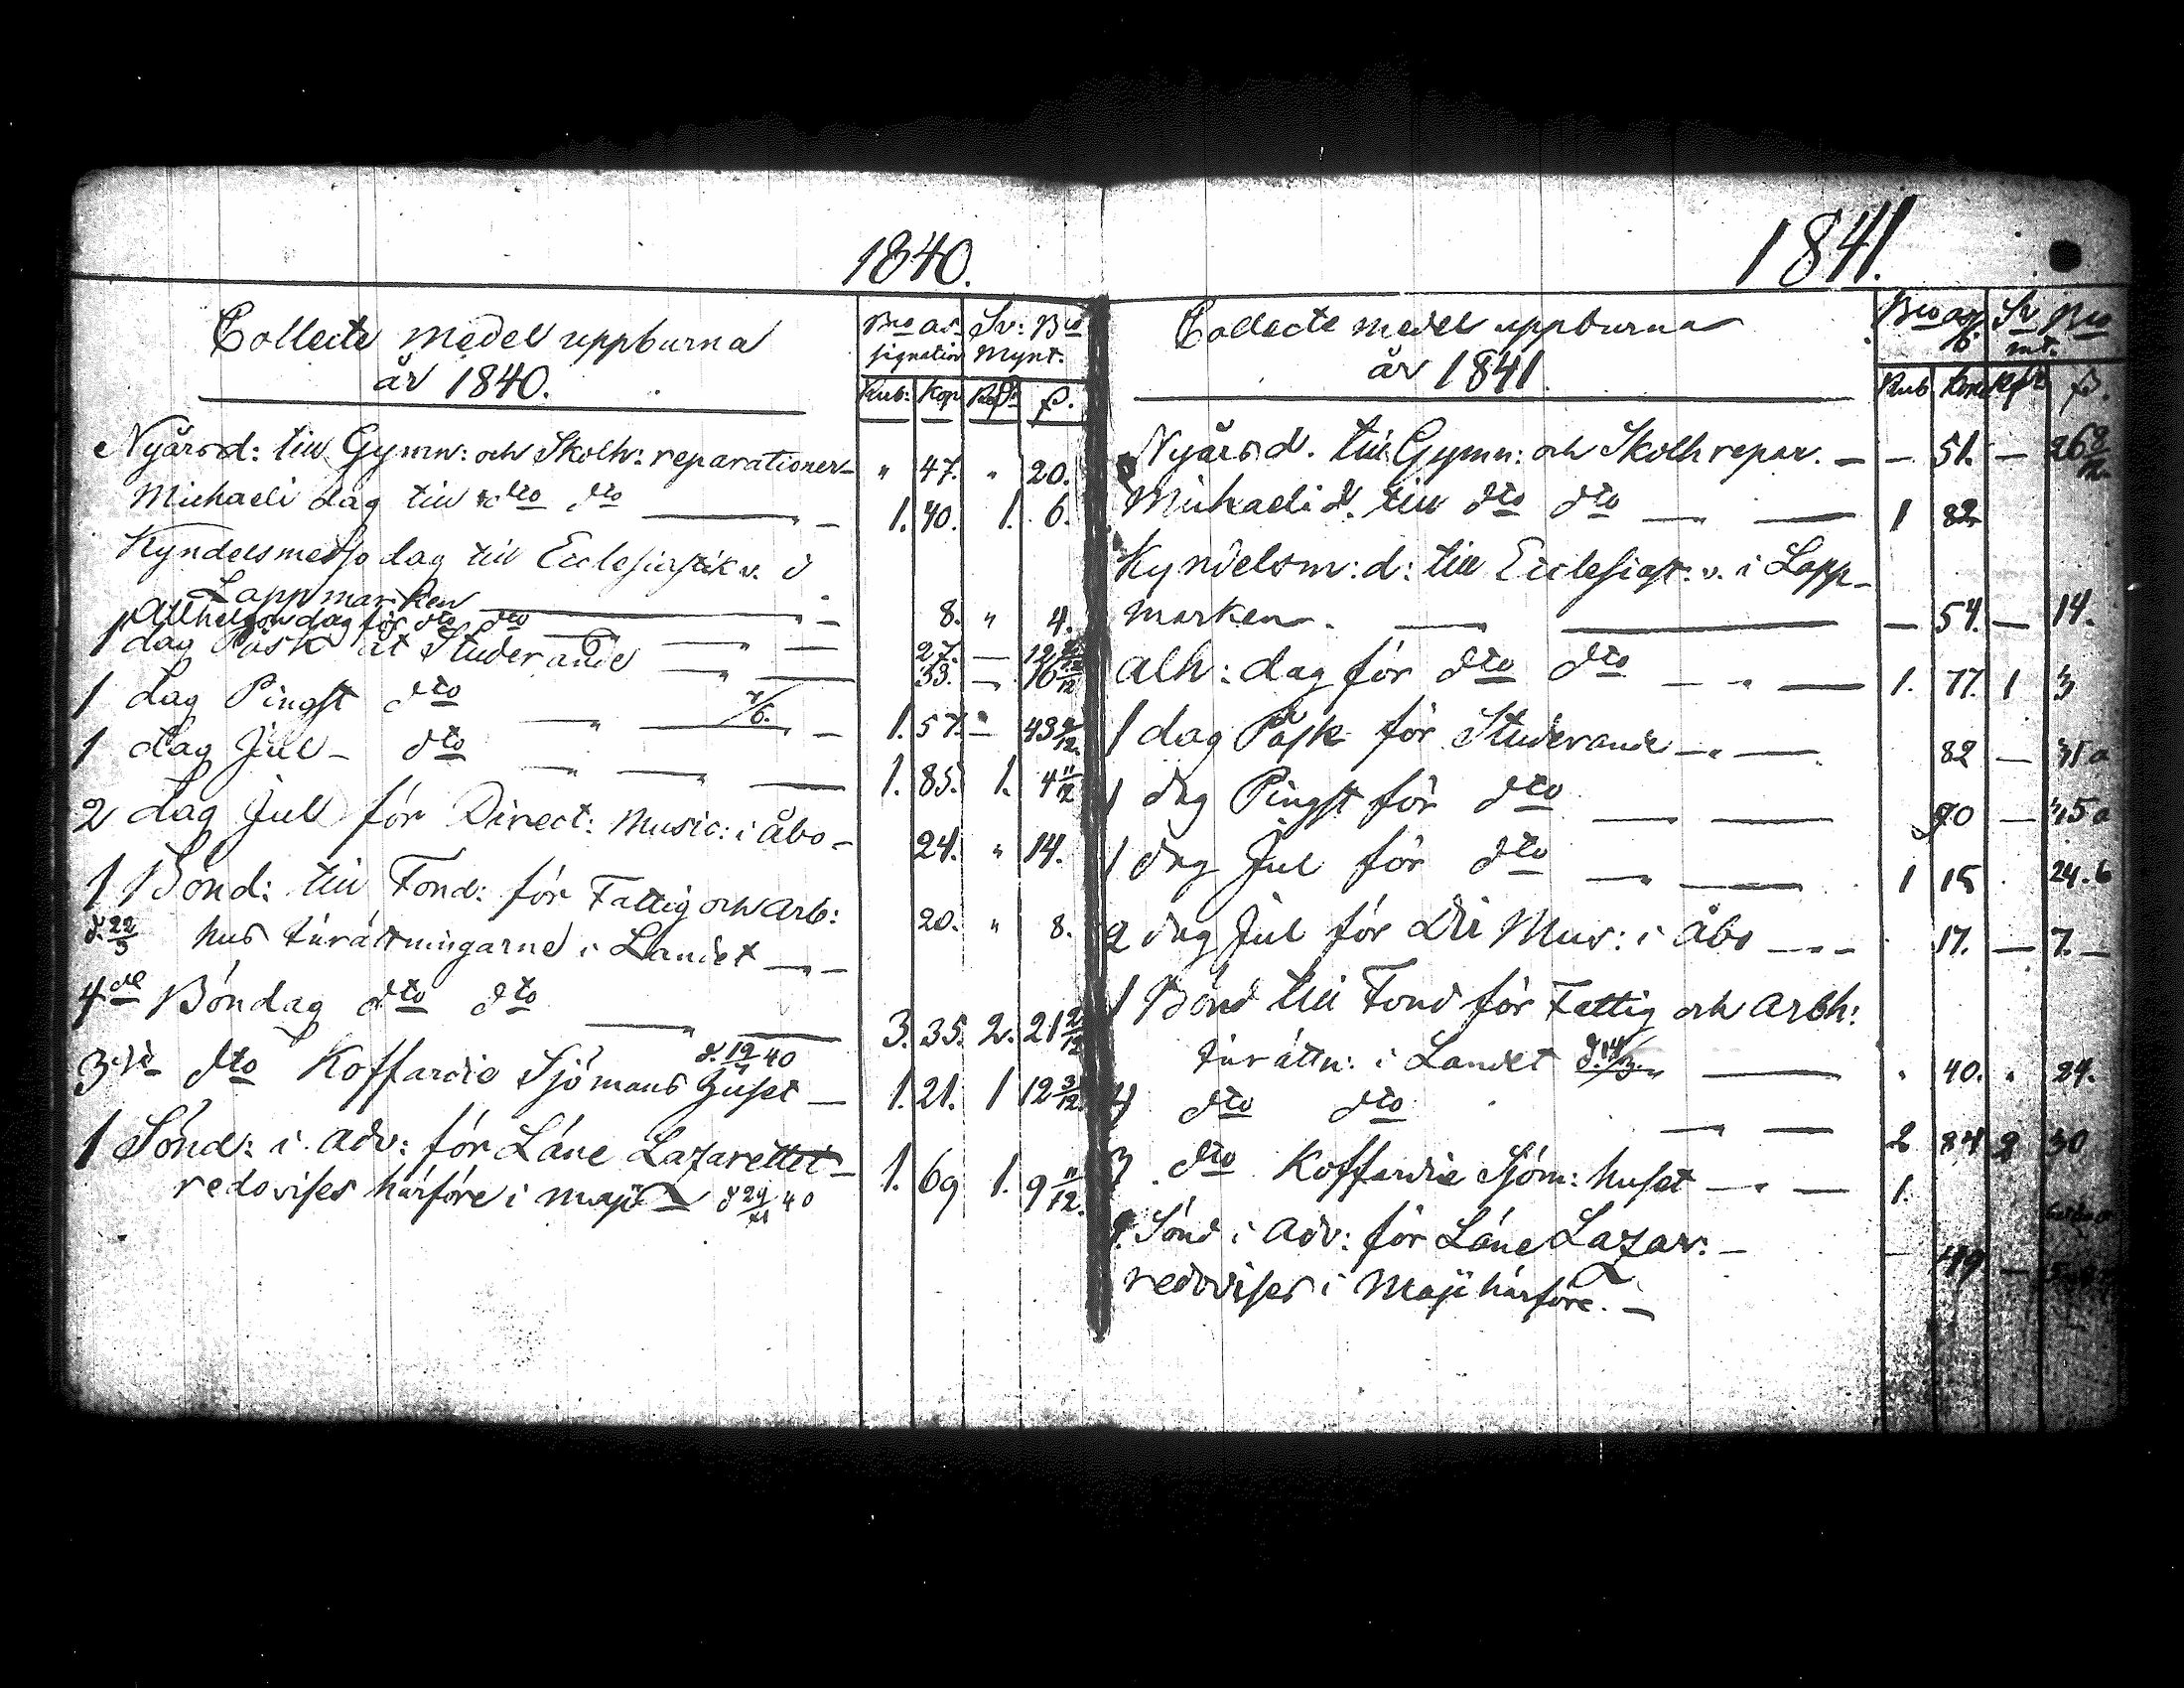 1840.
Collecte medel uppburna
år 1840.
Bco as- Sv: Bco
signation Mynt.
Rub: Kop Rdr ß.
Nyårsd: till Gymn: och Skolh: reparationer - " 47. " 20.
Michaeli dag till dto dto — - 1. 40. 1. 6.
Kyndelsmesso dag till Ecclesiastik v. i
Lappmarken — - 8. " 4.
Allhelgon dag för dto dto — 27. — 12
1 dag Påsk åt Studerande — 33. — 16
1 dag Pingst dto — " — 7/6. - 1. 57. " 43 9/12.
1 dag Jul - dto — " — " — 1. 85. 1. 4 11/12
2 dag Jul för Direct: Music: i Åbo - 24. " 14.
1 Bönd: till Fond: för Fattig och Arb:
d. 22/3 hus inrättningarne i Landet — - 20. " 8.
4de Böndag dto dto — " — 3. 35. 2. 21 2/12
d. 19/ 40
3dje dto Koffardie Sjömans Huset — 1. 21. 1 12 3/12.
1 Sönd: i Adv: för Läne Lazarettet - 1. 69 1. 9 11/12.
redovises härföre i Maji d 29/11 40
1841.
Collecte medel uppburna
år 1841.
Bco Sv Bco
mt.
Rub Kop Rdr ß.
Nyårsd. till Gymn: och Skolh repar. - - 51. — 26 8/12.
Michaeli d. till dto dto — — 1 82
Kyndelsm: d: till Ecclesiast: v. i Lapp-
marken. — — — 54. — 14.
Alh: dag för dto dto — " — 1. 77. 1 3
1 dag Påsk för Studerande — " — 82 —
1 dag Pingst för dto — — 90 —
1 dag Jul för dto — " — 1 15 24.6
2 dag Jul för Mus: i Åbo — " - 17. — 7. —
1 Bönd till Fond för Fattig och Arbh:
inrättn: i Landet d. 14/3 " — " 40. " 24.
4 dto dto — " — 2 84 2 30
3 dto Koffardie Sjöm: huset — " — 1.
1. Sönd i Adv: för Läne Lazar: - — 49 —
redovises i Maji härföre. —